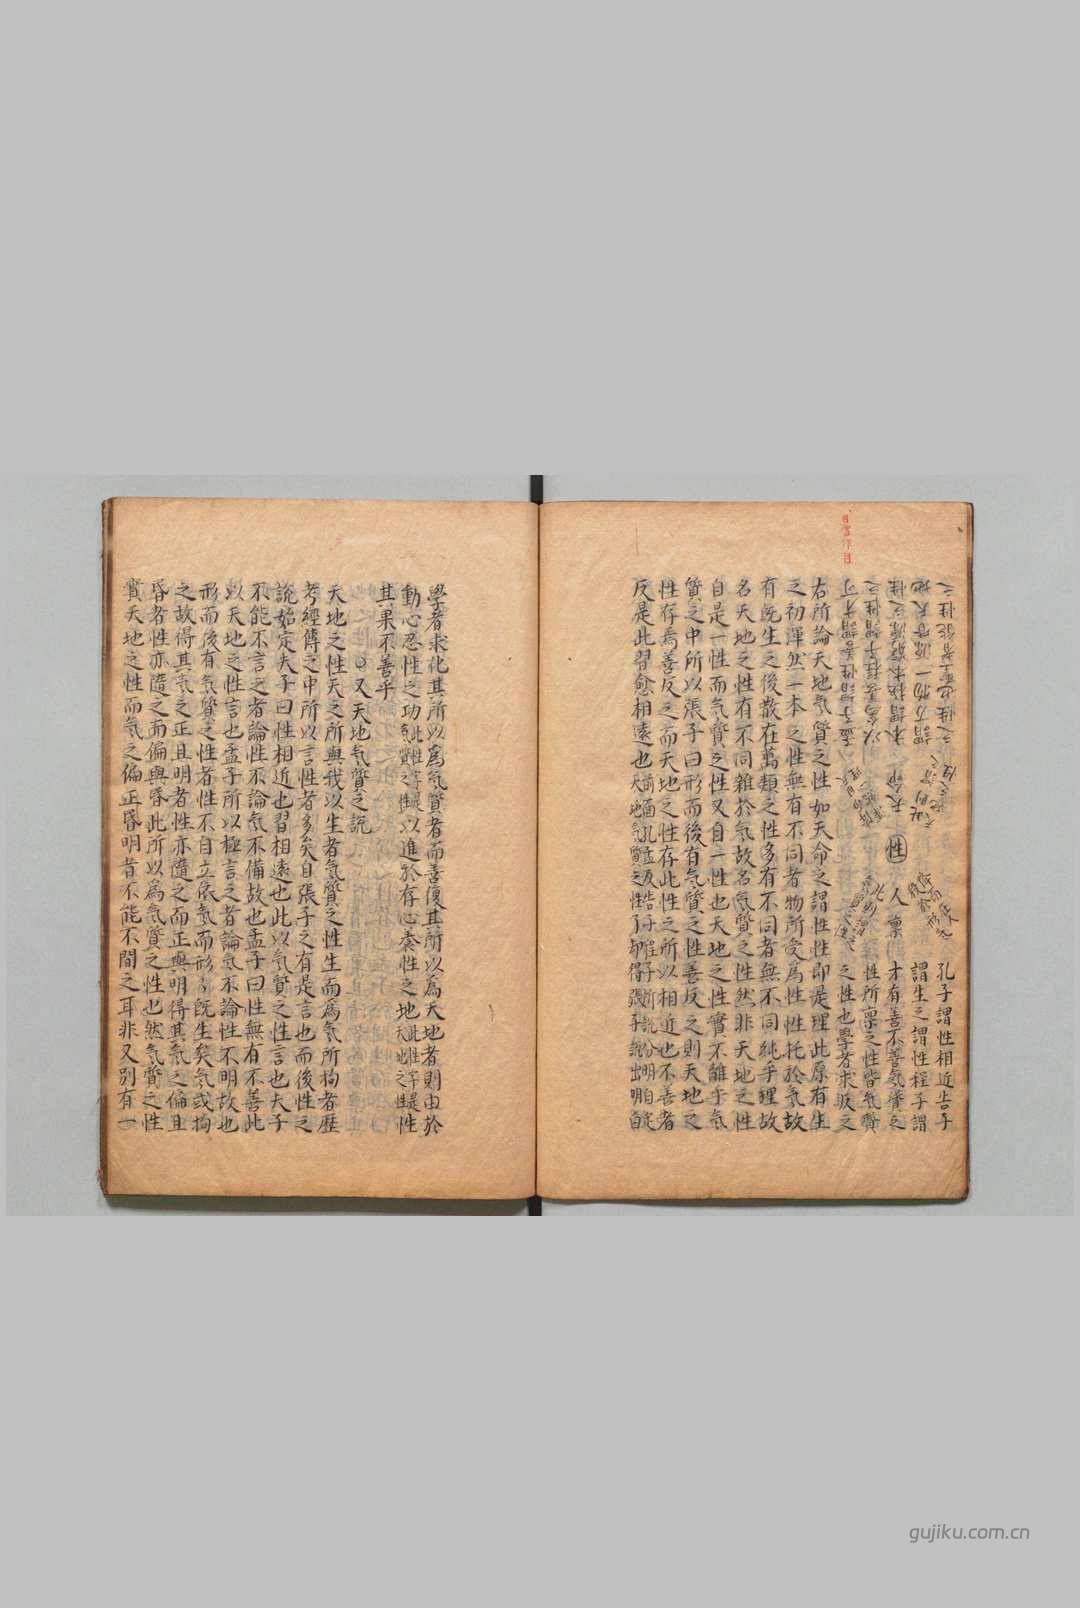 目當作目
孔子謂性相近告子
謂生之謂性程子謂
才有善不善气質之
性所禀之性皆气質
之性也學者求馭之
人禀
性
天命
之性也聖者能性之
謂万物一源者天地
本謂極本窮源之性
以為善程子謂性之
孟子謂性善謂才可
右所論天地气質之性如天命之謂性性即是理此原有生
之初渾然一本之性無有不同者物所受為性性托於气故
有既生之後散在萬類之性多有不同者無不同純乎理故
名天地之性有不同雜於气故名气質之性然非天地之性
自是一性而气質之性又自一性也天地之性實不離乎气
質之中所以張子曰形而後有气質之性善反之則天地之
性存焉善反之而天地之性存此性之所以相近也不善者
反是此習愈相遠也
學者求化其所以為气質者而善復其所以為天地者則由於
動心忍性之功此性字是气質之性以進於存心養性之地此性字是天地之性
其果不善乎
○又天地气質之說
天地之性天之所與我以生者气質之性生而爲气所拘者歷
考經傳之中所以言性者多矣自張子之有是言也而後性之
說始定夫子曰性相近也習相遠也此以气質之性言也夫子
不能不言之者論性不論气不備故也孟子曰性無有不善此
以天地之性言也孟子所以極言之者論气不論性不明故也
形而後有气質之性者性不自立依气而形形既生矣气或拘
之故得其气之正且明者性亦隨之而正與明得其气之偏且
昏者性亦隨之而偏與昏此所以為气質之性也然气質之性
實天地之性而气之偏正昏明者不能不間之耳非又別有一
gujiku.com.cn